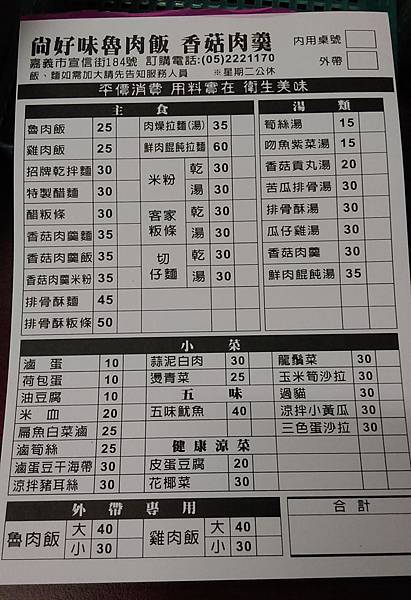 尙好味魯肉飯 香菇肉羹
內用桌號
嘉義市宣信街184號 訂購電話:(05)2221170
飯、麵如需加大請先告知服務人員 ※星期二公休
外帶
平價消費 用料實在 衛生美味
主食 湯類
魯肉飯 25 肉燥拉麵(湯) 35 筍絲湯 15
雞肉飯 25 鮮肉餛飩拉麵 60 吻魚紫菜湯 15
招牌乾拌麵 30 米粉 乾 30 香菇貢丸湯 20
特製醋麵 30 湯 30 苦瓜排骨湯 30
醋粄條 30 客家粄條 乾 30 排骨酥湯 30
香菇肉羹麵 35 湯 30 瓜仔雞湯 30
香菇肉羹飯 35 切仔麵 乾 30 香菇肉羹 30
香菇肉羹米粉 35 湯 30 鮮肉餛飩湯 35
排骨酥麵 45
排骨酥粄條 50
小菜
滷蛋 10 蒜泥白肉 30 龍鬚菜 30
荷包蛋 10 燙青菜 25 玉米筍沙拉 30
油豆腐 10 五味 過貓 30
米血 20 五味魷魚 40 涼拌小黃瓜 30
扁魚白菜滷 25 三色蛋沙拉 30
滷筍絲 25 健康涼菜
滷蛋豆干海帶 30 皮蛋豆腐 20
涼拌豬耳絲 30 花椰菜 30
外帶專用 合計
魯肉飯 大 40 雞肉飯 大 40
小 30 小 30